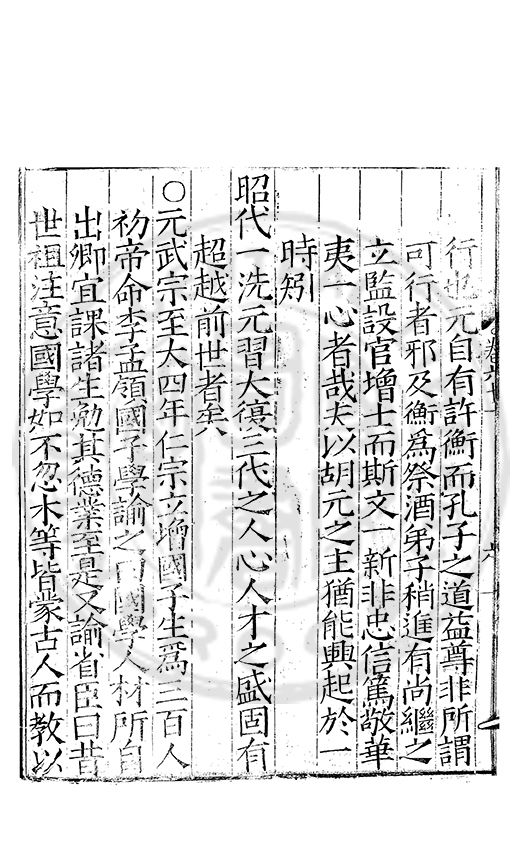 行也元自有許衡而孔子之道益尊非所謂
可行者邪及衡爲祭酒弟子稍進有尚繼之
立監設官增士而斯文一新非忠信篤敬華
夷一心者哉夫以胡元之主猶能興起於一
時矧
昭代一洗元習大復三代之人心人才之盛固有
超越前世者矣
○元武宗至大四年仁宗立增國子生爲三百人
初帝命李孟領國子學諭之曰國學人材所自
出卿宜課諸生勉其德業至是又諭省臣曰昔
世祖注意國學如不忽木等皆蒙古人而教以